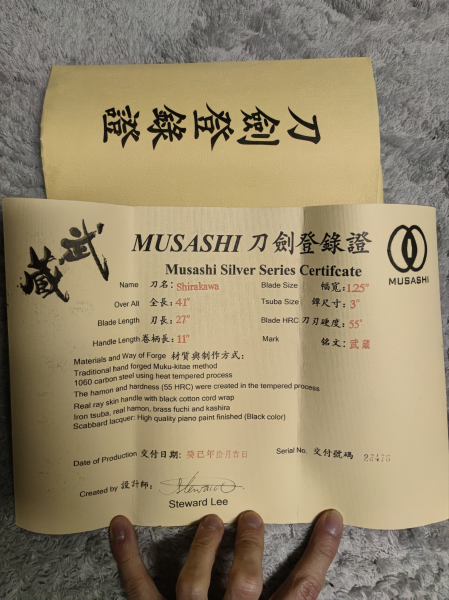 刀劍登錄證
武蔵
MUSASHI 刀劍登錄證
Musashi Silver Series Certifcate
MUSASHI
Name 刀名: Shirakawa Blade Size 幅寬: 1.25"
Over All 全長: 41" Tsuba Size 鐔尺寸: 3"
Blade Length 刃長: 27" Blade HRC 刀刃硬度: 55°
Handle Length 卷柄長: 11" Mark 銘文: 武藏
Materials and Way of Forge 材質與制作方式:
Traditional hand forged Muku-kitae method
1060 carbon steel using heat tempered process
The hamon and hardness (55 HRC) were created in the tempered process
Real ray skin handle with black cotton cord wrap
Iron tsuba, real hamon, brass fuchi and kashira
Scabbard lacquer: High quality piano paint finished (Black color)
Date of Production 交付日期: 癸巳年 月吉日 Serial No. 交付號碼
Created by 設計師:
Steward Lee